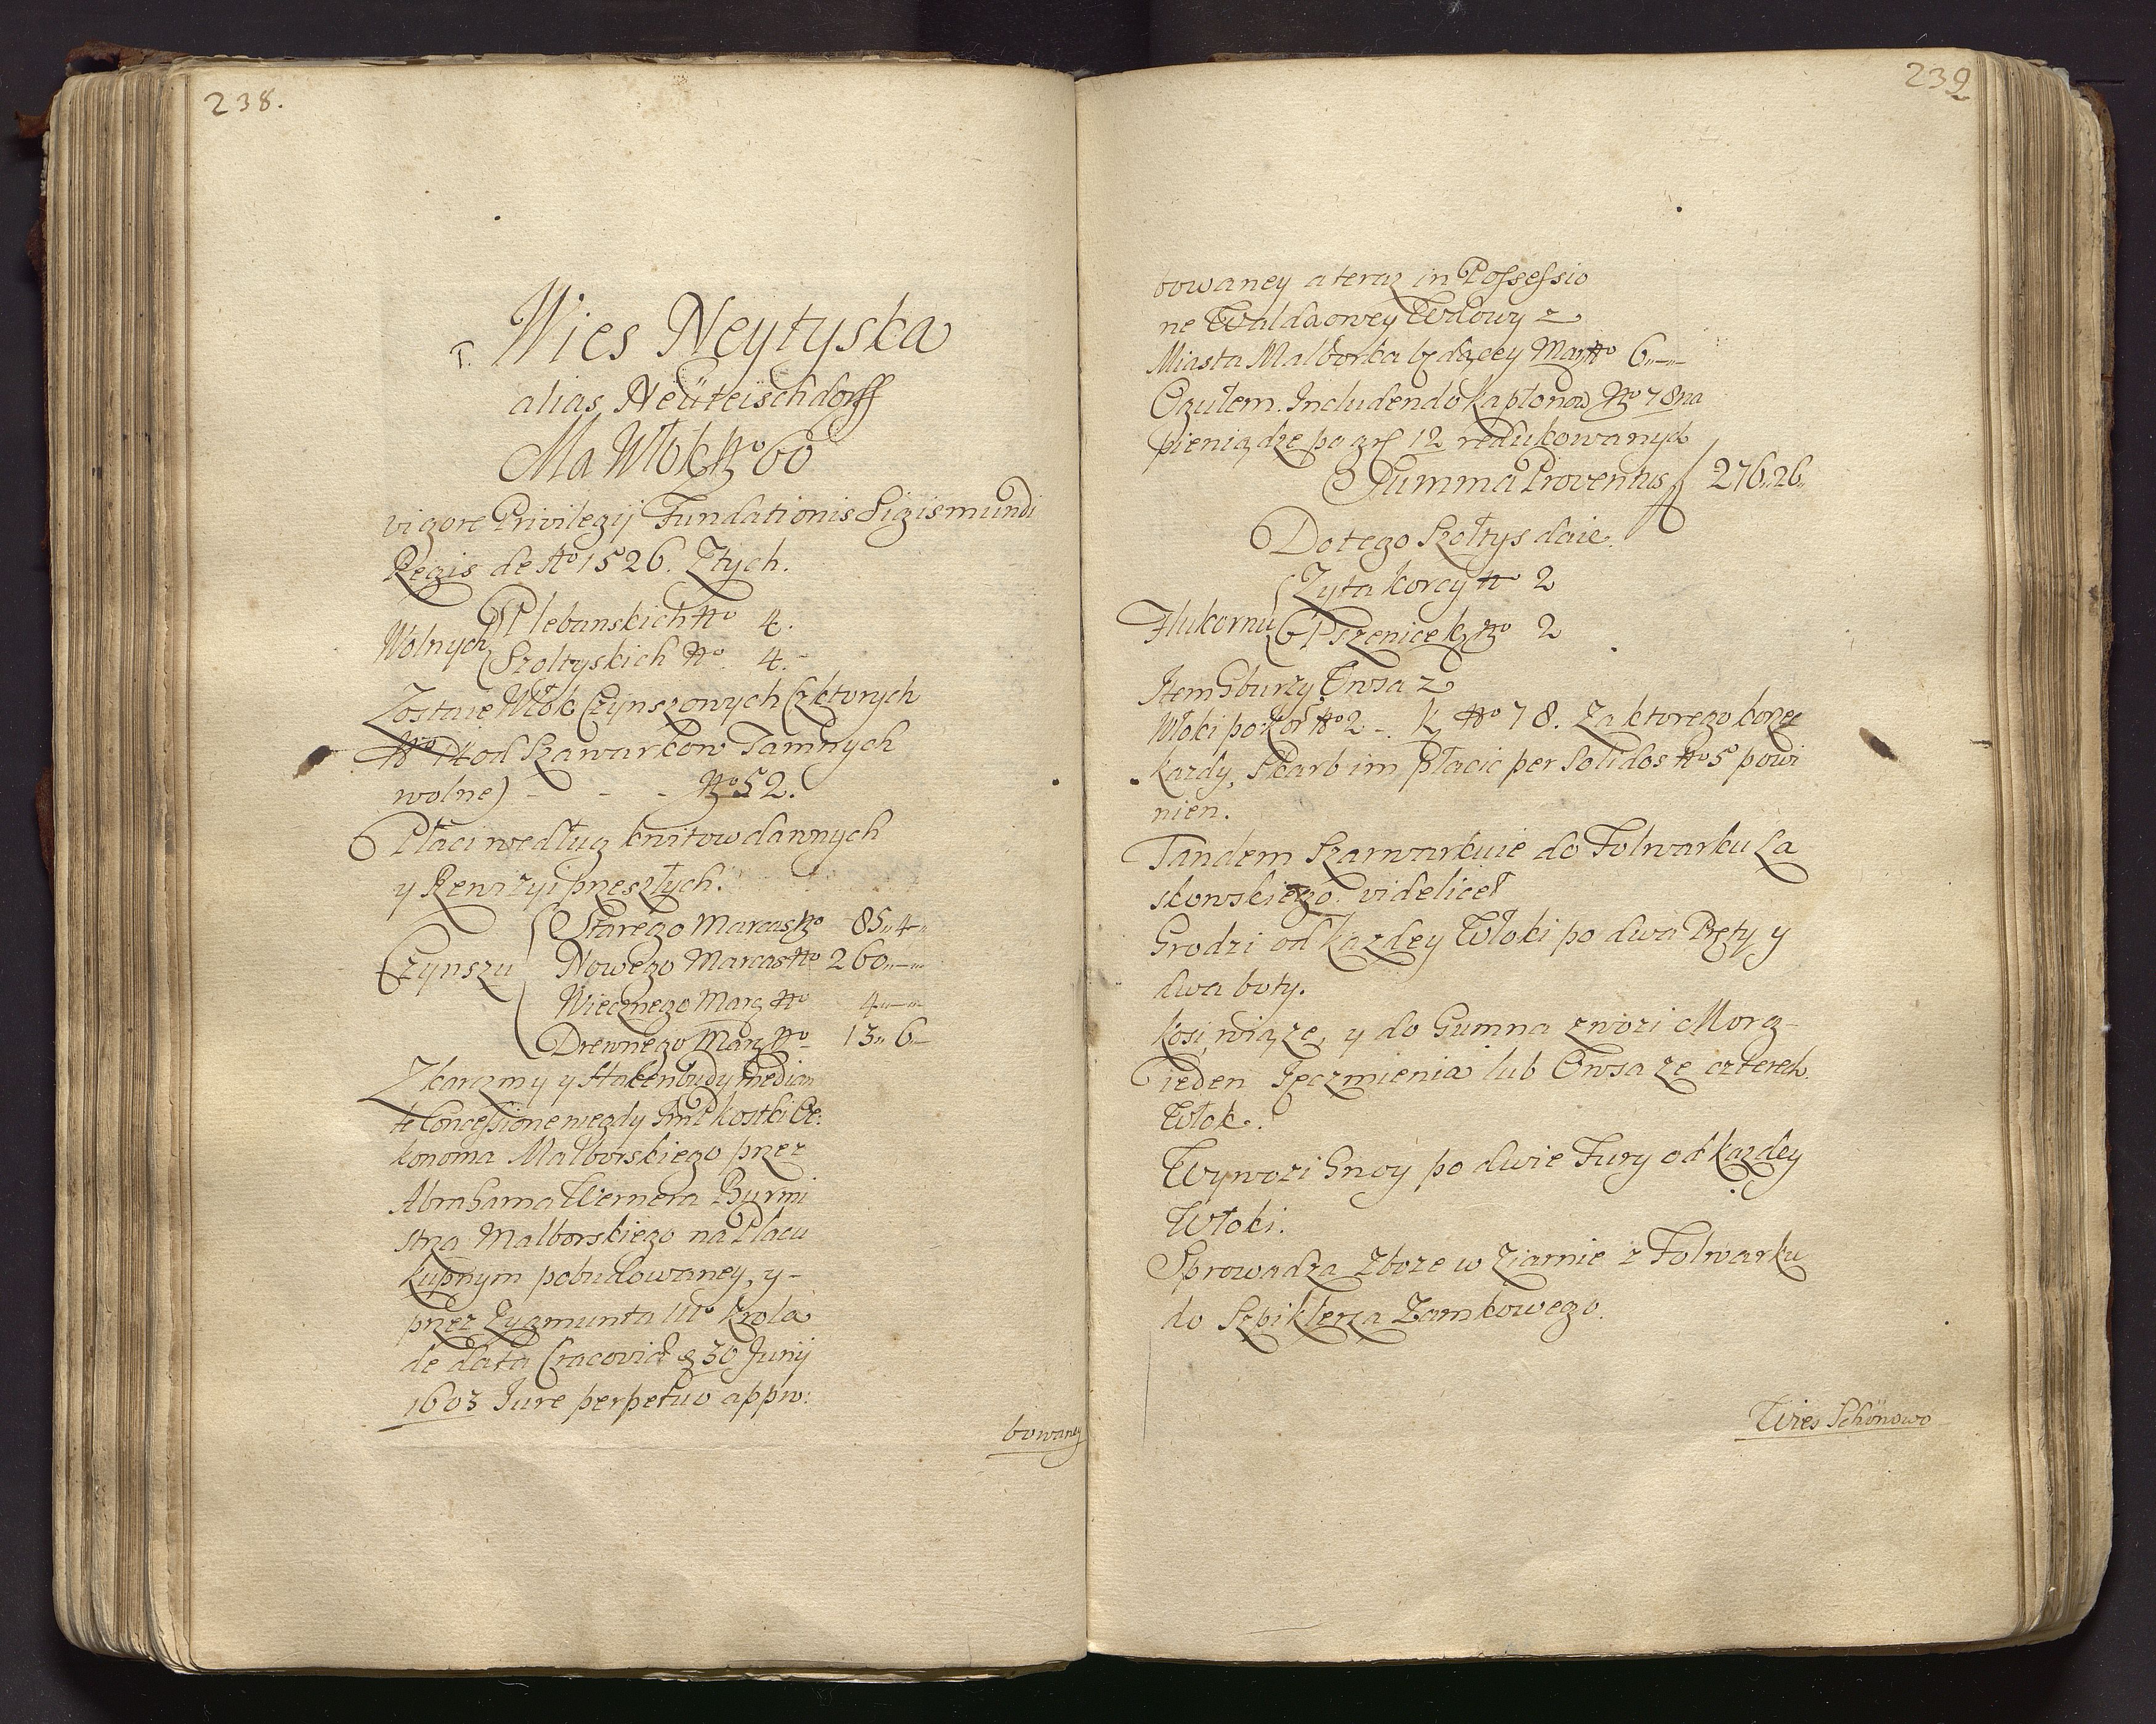 238.
Wies Neytyska
alias Neüteischdorff
Ma Włok No 60
vigore Privilegij Fundationis Sigismundi
Regis de Ao 1526. Ztych.
Wolnych
Plebanskich No 4.
Szoltyskich No. 4.-
Zostaie Włok Czynszowych (z ktorych
No 14 od Szarwarkow Tamnych
wolne) - - - No 52.
Płaci według kwitow dawnych
y Rewizyi przeszłych.
Czynszu
Starego Marcas No 85„4„
Nowego Marcas No 260„—„
Wiecznego Marc No 4„—„
Drewnego Marc No 13„6—
Z karczmy y Hakenbudy median
te Concessione niegdy Jmć Kostki Oe:
konoma Malborskiego przez
Abrahama Wernera Burmi
strza Malborskiego na Placu
kupnym pobudowaney, y -
przez Zygmunta IIIo Krola
de data Cracoviæ 30 Junij
1603 Jure perpetuo appro:
bowaney
239
bowaney a teraz in Possessio
ne Waldaowey Wdowy z
Miasta Malborka będącey Marc No 6„—„
Ogułem. Includendo kapłonow No 78 na
pieniądze po gr 12 redukowanych
Summa Proventus 276„26„
Do tego Szołtys daie.
Hukornu
Zyta korcy No 2
Pszenice k. No 2
Item Gburzy Owsa z
Włoki po kor No 2 -. k. No 78. Za ktorego korzec
kazdy, Skarb im płacic per Solidos No 5 powi
nien.
Tandem Szarwarkuie do Folwarku La
skowskiego. videlicet
Grodzi od kazdey Włoki po dwa Pręty y
dwa boty.
Kosi, wiąze, y do Gumna zwozi Morg-
ieden Jęczmienia lub Owsa ze czterech
Włok.
Wywozi Gnoy po dwie Fury od kazdey
Włoki.
Sprowadza zboze w ziarnie z Folwarku
do Szpiklerza Zamkowego.
Wies Schönowo